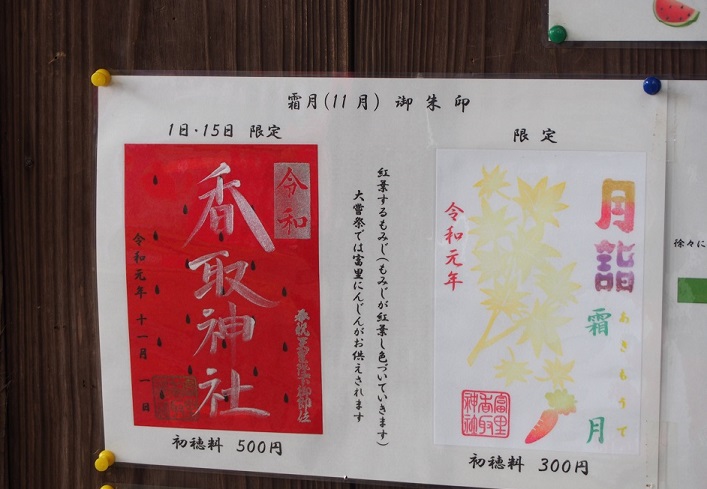 霜月(11月) 御朱印
1日・15日 限定
令和
香取神社
令和元年 十一月 一日
初穂料 500円
紅葉するもみじ(もみじが紅葉し色づいていきます)
大嘗祭では富里にんじんがお供えされます
限定
月詣
霜月
令和元年
富里
香取
神社
初穂料 300円
徐々に